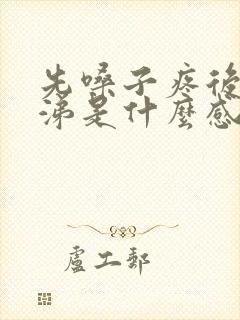 先嗓子疼後
涕是什麼感
盧工郵